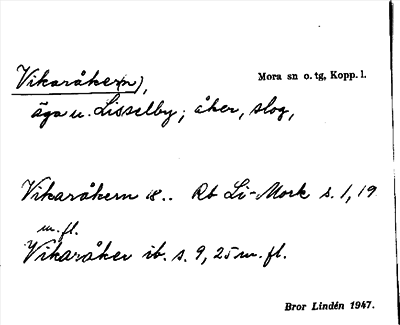 Vikaråke(r)n),
Mora sn o. tg, Kopp. l.
äga u. Lisselby; åker, slog,
Vikaråkern 18.. Rb Li-Mork s. 1, 19
m. fl.
Vikaråker ib. s. 9, 25 m. fl.
Bror Lindén 1947.